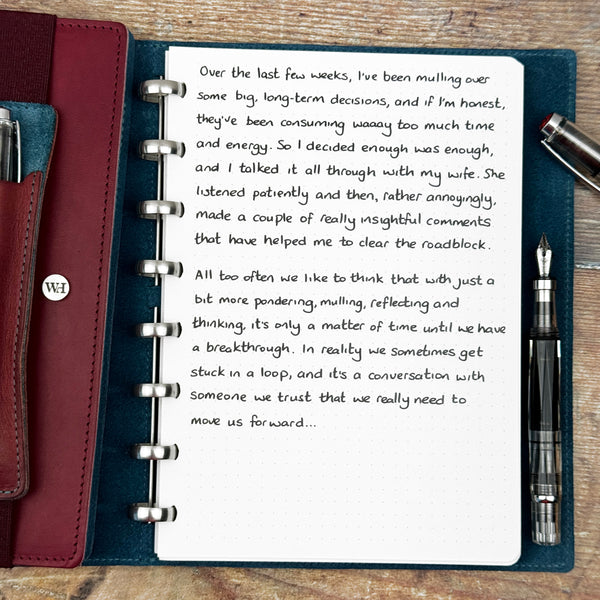 Over the last few weeks, I've been mulling over
some big, long-term decisions, and if I'm honest,
they've been consuming waaay too much time
and energy. So I decided enough was enough,
and I talked it all through with my wife. She
listened patiently and then, rather annoyingly,
made a couple of really insightful comments
that have helped me to clear the roadblock.
All too often we like to think that with just a
bit more pondering, mulling, reflecting and
thinking, it's only a matter of time until we have
a breakthrough. In reality we sometimes get
stuck in a loop, and it's a conversation with
someone we trust that we really need to
move us forward...
WH